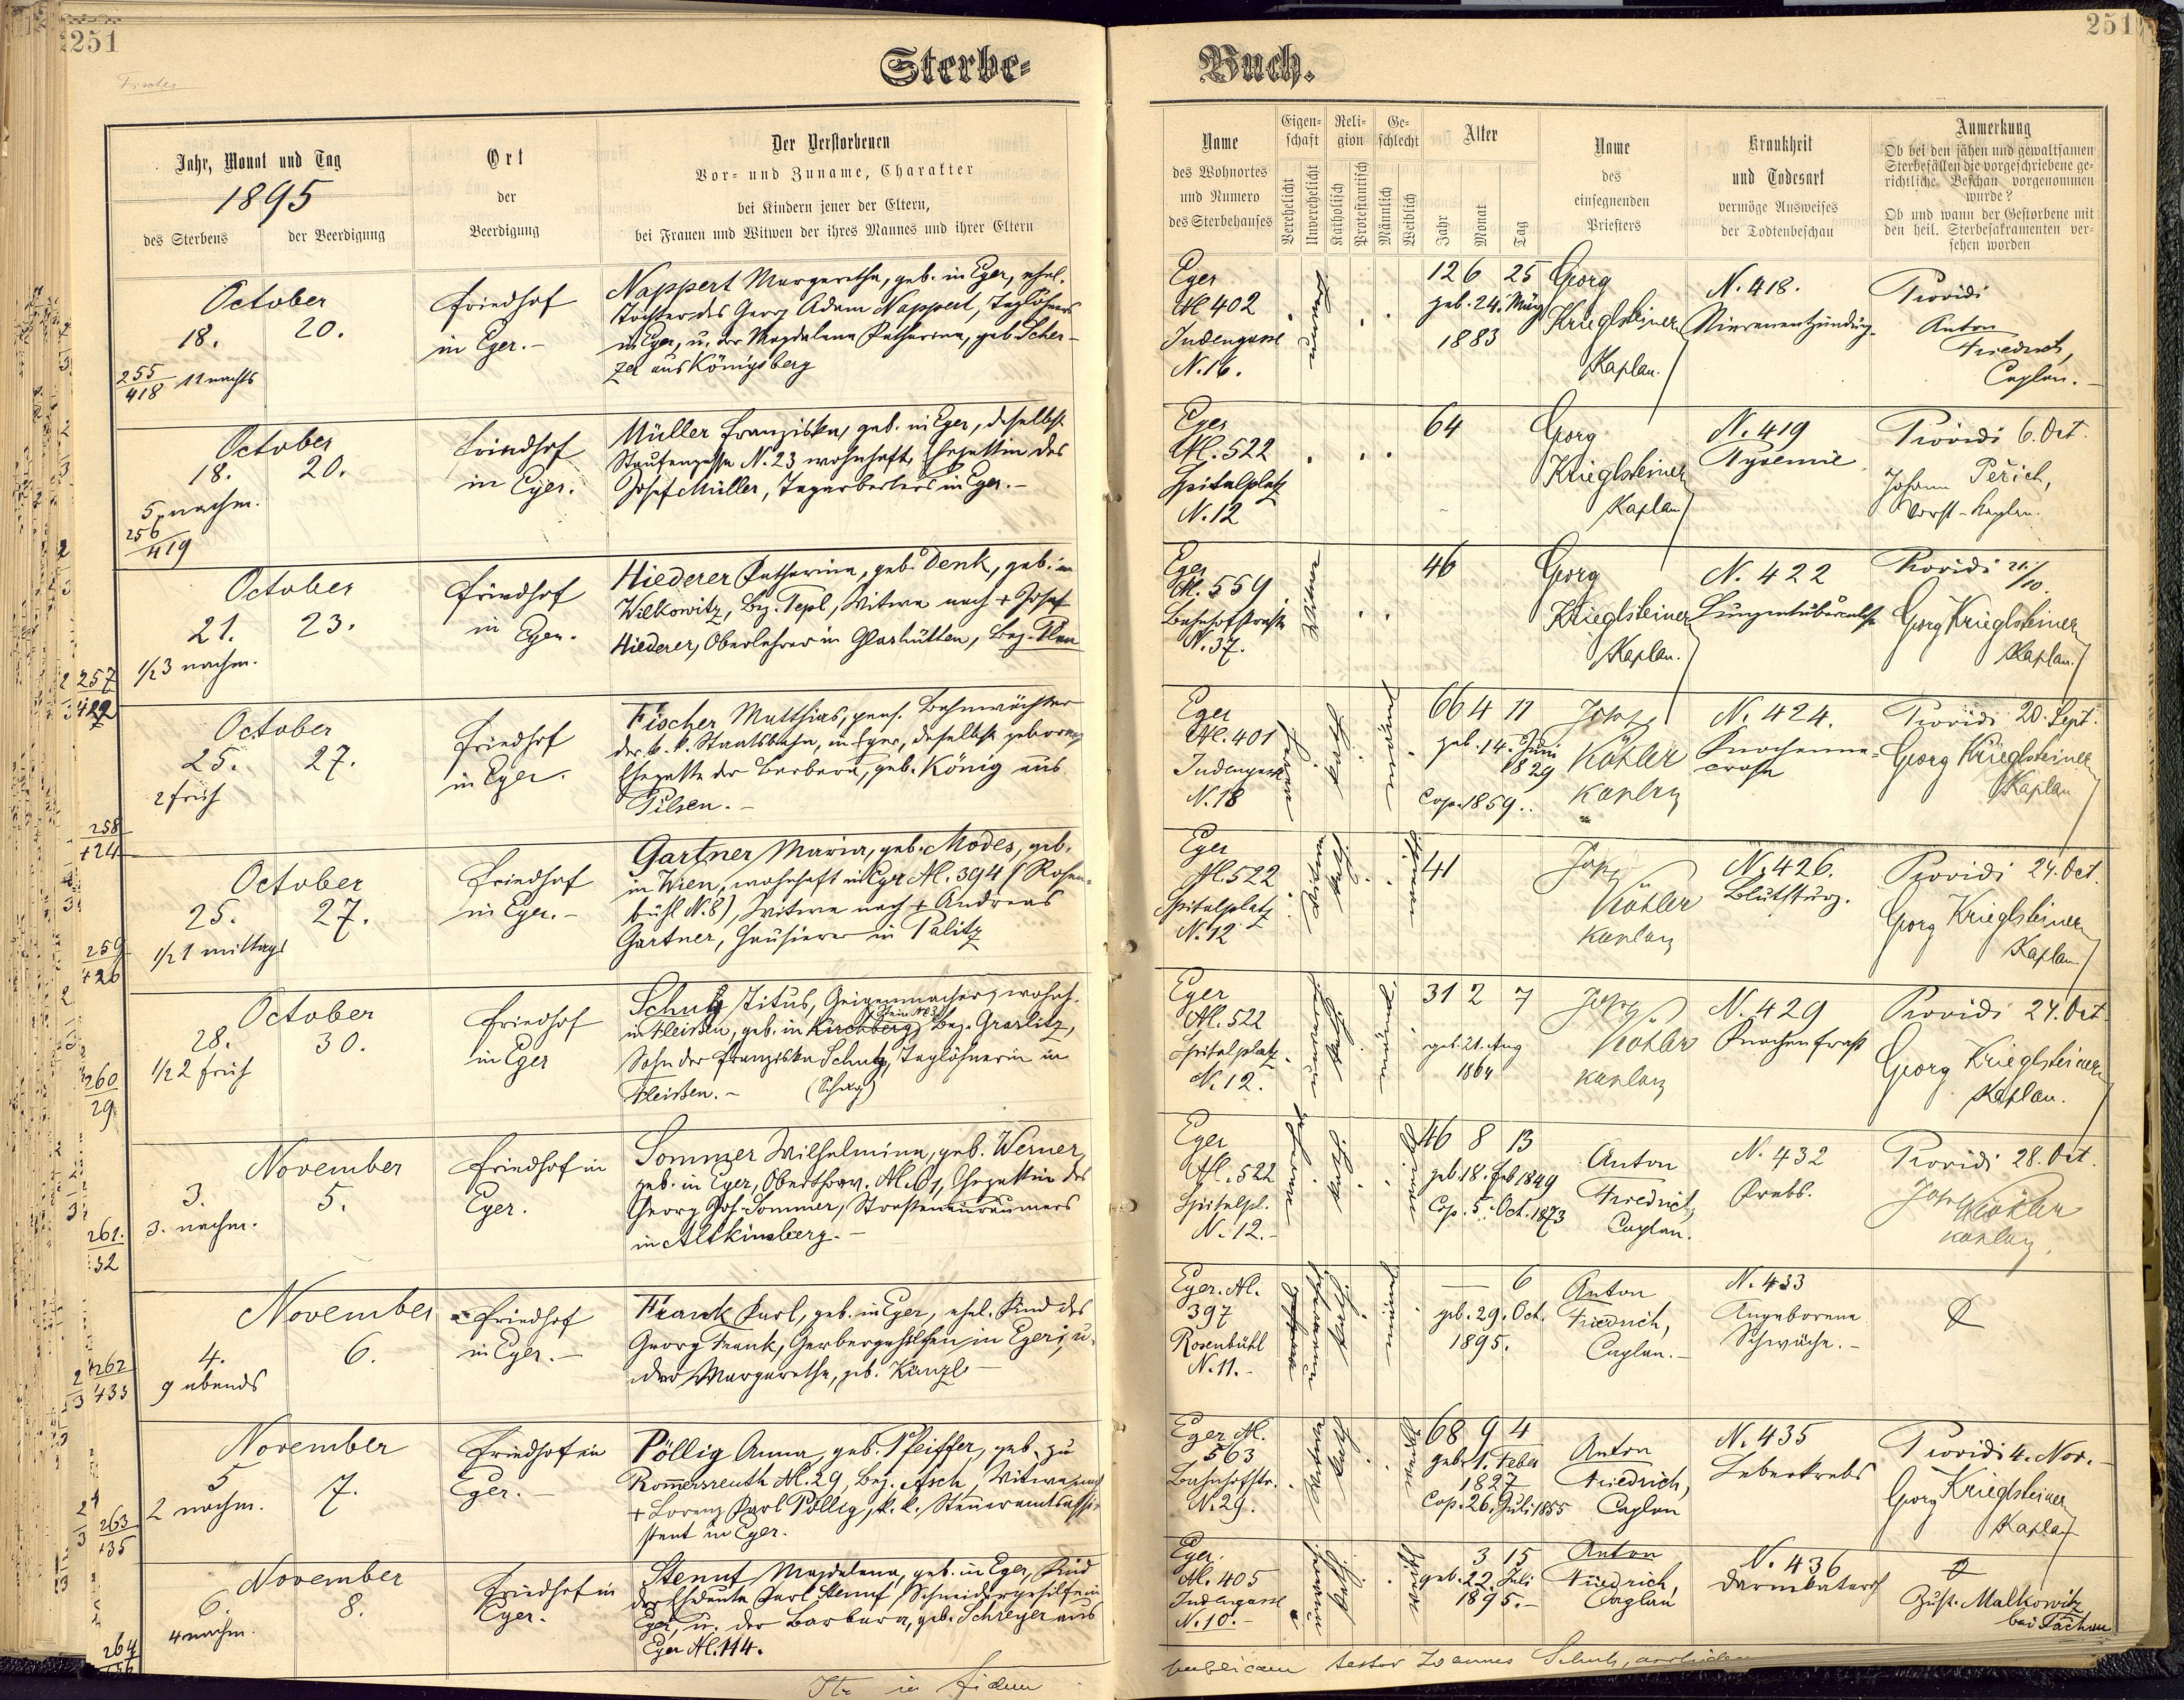 251
Sterbe-
Jahr, Monat und Tag
1895
des Sterbens
der Beerdigung
Ort
der
Beerdigung
Der Verstorbenen
Vor- und Zuname, Charakter
bei Kindern jener der Eltern,
bei Frauen und Witwen der ihres Mannes und ihrer Eltern
October
18. 20.
255
418 11 nachts
Friedhof
in Eger.-
Nappert Margaretha, geb. in Eger, ehel.
Tochter des Georg Adam Nappert, Taglöhners
in Eger, u. der Magdalena Katharina, geb. Scher-
zer aus Königsberg
October
18. 20.
5 nachm.
256
419
Friedhof
in Eger.
Müller Franziska, geb. in Eger, daselbst
N. 23 wohnhaft, Ehegattin des
Josef Müller, Tagarbeiters in Eger.-
October
21. 23.
1/2 3 nachm.
257
422
Friedhof
in Eger.
Hiederer Katharina, geb. Denk, geb. in
Wilkowitz, Bez. Tepl, Witwe nach + Josef
Hiederer, Oberlehrer in Glashütten, Bez. Plan
October
25. 27.
2 früh
258
424
Friedhof
in Eger.
Fischer Matthias, pens. Bahnwächter
der k. k. Staatsbahn, in Eger, daselbst geboren,
Ehegatte der Barbara, geb. König aus
Pilsen.-
October
25. 27.
1/2 1 mittags
259
426
Friedhof
in Eger.-
Gartner Maria, geb. Modes, geb.
in Wien, wohnhaft in Eger Al. 394 (Rosen-
bühl N. 8), Witwe nach + Andreas
Gartner, Hausierer in Palitz
October
28. 30.
1/2 2 früh
260
29
Friedhof
in Eger
Schutz Titus, Geigenmacher, wohnh.
in Fleißen, geb. in Kirchberg, Bez. Graslitz,
Sohn der Franziska Schutz, Taglöhnerin in
Fleissen.-
November
3. 5.
3. nachm.
261.
32
Friedhof in
Eger.
Sommer Wilhelmina, geb. Werner,
geb. in Eger, Ehegattin des
Georg Jos. Sommer, Strasseneinräumers
in Altkinsberg.-
November
4. 6.
9 abends
262
433
Friedhof
in Eger.-
Frank Karl, geb. in Eger, ehel. Kind des
Georg Frank, Gerbergehilfen in Eger, u.
der Margaretha, geb. Künzl-
November
5 7.
2 nachm.
263
435
Friedhof in
Eger.-
Pöllig Anna, geb. Pfeiffer, geb. zu
Rommersreuth Al. 29, Bez. Asch, Witwe nach
+ Lorenz Karl Pöllig, k. k. Steueramtsassi-
stent in Eger.
November
6. 8.
4 nachm.
264
Friedhof in
Eger.
Stemf Magdalena, geb. in Eger, Kind
der Eheleute Karl Stemf, Schneidergehilfe in
Eger, u. der Barbara, geb. Schreyer aus
Eger Al. 114.
Ita in fidem
251
Buch.
Name
des Wohnortes
und Numero
des Sterbehauses
Eigen-
schaft
Verehelicht
Unverehelicht
Reli-
gion
Katholisch
Protestantisch
Ge-
schlecht
Männlich
Weiblich
Alter
Jahr
Monat
Tag
Name
des
einsegnenden
Priesters
Krankheit
und Todesart
vermöge Ausweises
der Todtenbeschau
Anmerkung
Ob bei den jähen und gewaltsamen
Sterbefällen die vorgeschriebene ge-
richtliche Beschau vorgenommen
wurde?
Ob und wann der Gestorbene mit
den heil. Sterbesakramenten ver-
sehen worden
Eger
Al 402
Judengasse
N. 16.
12 6 25
geb. 24. März
1883
Georg
Krieglsteiner
Kaplan.
N. 418.
Nierenentzündung.
Providi
Anton
Friedrich,
Caplan.-
Eger
Al. 522
Spitalplatz
N. 12
64
Georg
Krieglsteiner
Kaplan
N. 419
Pyaemie
Providi 6. Oct.
Johann
Eger
Al. 559
Bahnhofstraße
N. 37.
Witwe
46
Georg
Krieglsteiner
Kaplan.
N. 422
Lungentuberculose
Providi 21/10.
Georg Krieglsteiner
Kaplan.
Eger
Al. 401
Judengasse
N. 18
66 4 11
geb. 14. Juni
1829
Cop. 1859.
Josef
Köhler
Kaplan
N. 424.
Knochenne-
crose
Providi 20. Sept.
Georg Krieglsteiner
Kaplan
Eger
Al. 522
Spitalplatz
N. 12
41
Josef
Köhler
Kaplan
N. 426.
Blutsturz.
Providi 24. Oct.
Georg Krieglsteiner
Kaplan
Eger
Al. 522
Spitalplatz
N. 12.
31 2 7
geb. 21. Aug
1864
Josef
Köhler
Kaplan
N. 429
Knochenfrass
Providi 24. Oct.
Georg Krieglsteiner
Kaplan.
Eger
Al. 522
Spitalpl.
N. 12.-
46 8 13
geb. 18. Feb 1849
Cop. 5. Oct. 1873
Anton
Friedrich,
Caplan.
N. 432
Krebs.
Providi 28. Oct.
Josef Köhler
Kaplan.
Eger. Al.
397
Rosenbühl
N. 11.-
— 6
geb. 29. Oct.
1895.
Anton
Friedrich,
Caplan.-
N. 433
Angeborene
Schwäche.-
Eger Al.
563
Bahnhofstr.
N. 29.
68 9 4
geb. 1. Feber
1827
Cop. 26. Juli 1855
Anton
Friedrich,
Caplan
N. 435
Leberkrebs
Providi 4. Nov.-
Georg Krieglsteiner
Kaplan
Eger.
Al. 405
Judengasse
N. 10.-
3 15
geb. 22. Juli
1895.-
Anton
Friedrich,
Caplan
N. 436
Darmkatarrh
Zust. Malkowitz
bei Tachau
publicam testor Joannes Schuh,